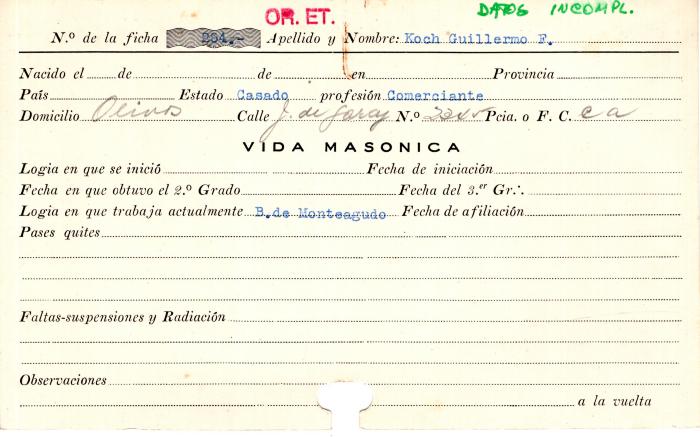 OR. ET.
DATOS INCOMPL.
N.º de la ficha 294.- Apellido y Nombre: Koch Guillermo F.
Nacido el de de en Provincia
País Estado Casado profesión Comerciante
Domicilio Olivos Calle J. de Garay N.º Pcia. o F. C. C A
VIDA MASONICA
Logia en que se inició Fecha de iniciación
Fecha en que obtuvo el 2.º Grado Fecha del 3.er Gr∴
Logia en que trabaja actualmente B. de Monteagudo Fecha de afiliación
Pases quites
Faltas-suspensiones y Radiación
Observaciones
a la vuelta